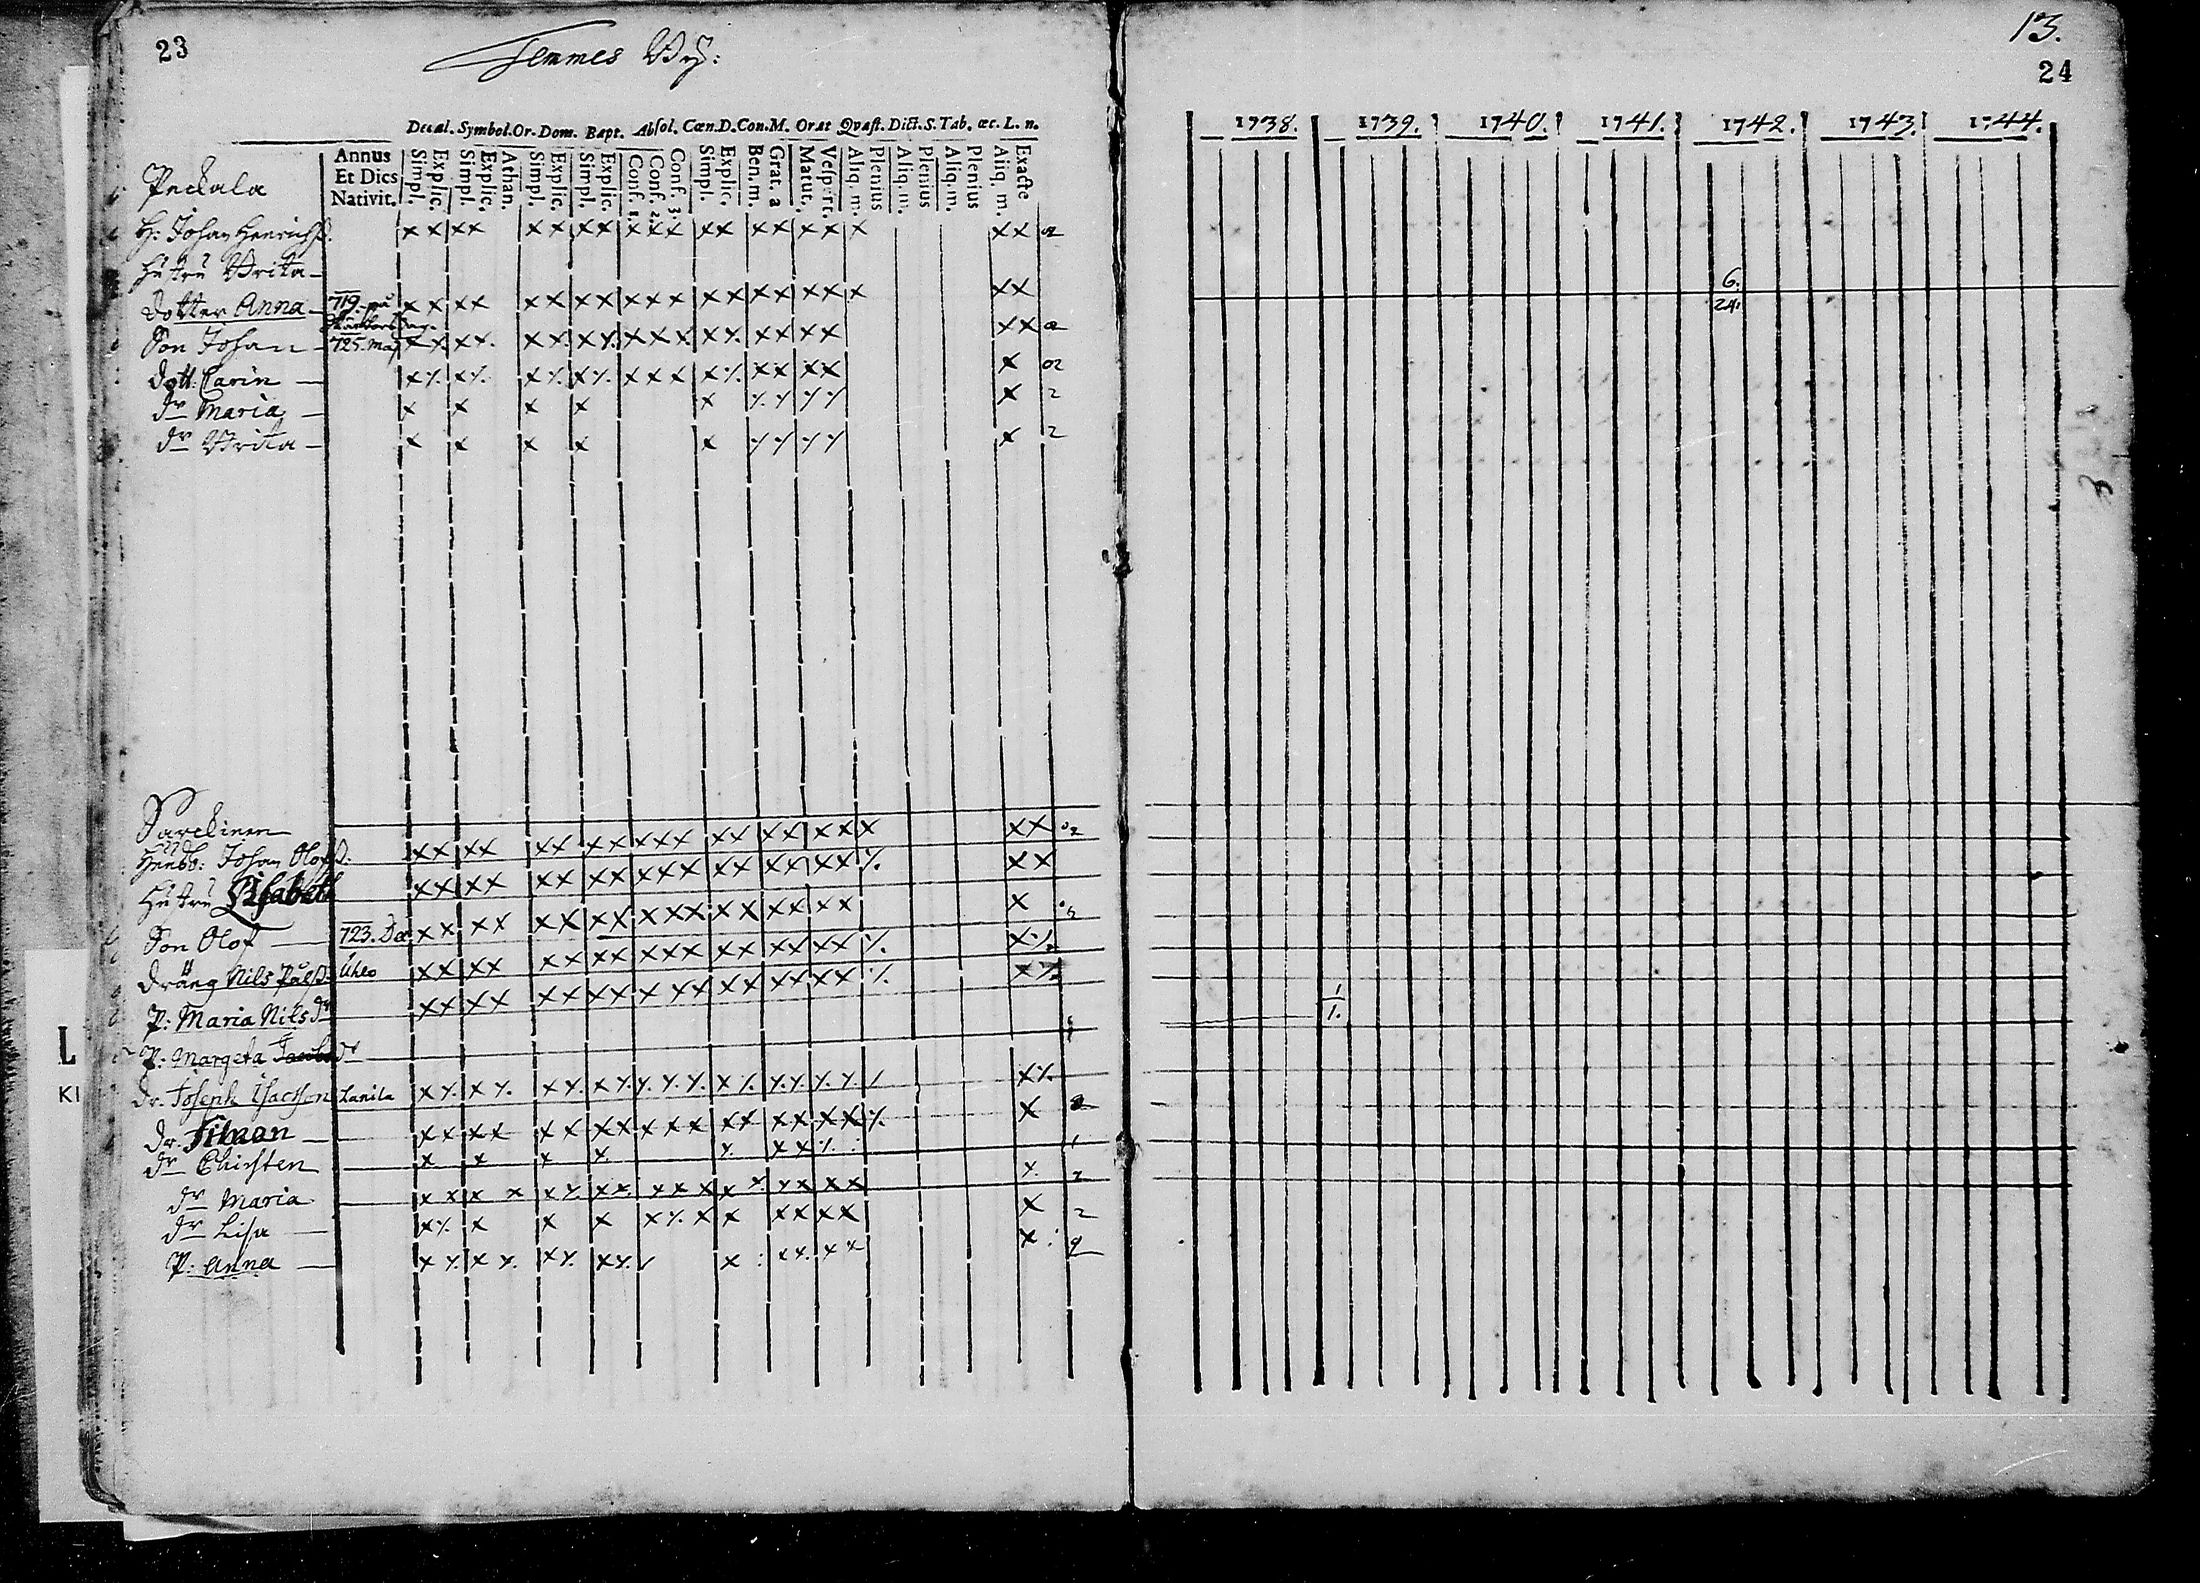 23
Temmes By:
13.
24
Decal. Symbol. Or. Dom. Bapt. Absol. Cœn. D. Con. M. Orat Qvæst. Dict. S. Tab. œc. L. n.
1738. 1739. 1740. 1741. 1742. 1743. 1744.
Annus Et Dies Nativit.
Simpl. Explic. Simpl. Explic. Athan. Simpl. Explic. Simpl. Explic. Conf. 1. Conf. 2. Conf. 3. Simpl. Explic. Ben. m. Grat. a Matut. Vespert. Aliq. m. Plenius Aliq. m. Plenius Aliq. m. Plenius Aliq. m. Exacte
Peckala
H: Johan Henrichß.
Hustru Brita
6.
24.
dotter Anna 719.
Son Johan 725. Maj
dott: Carin
dr Maria
dr Brita
Sarckinen
Husb: Johan Olofß.
Hustru Elisabeth
Son Olof 723. Dec
dräng Nils Pålß. Uhleo
P: Maria Nilsdr
1
1.
P: Margeta
Dr. Joseph Isacsson Lanila
Dr. Simon
dr Chirsten
dr Maria
dr Lisa
P: Anna
L
KI